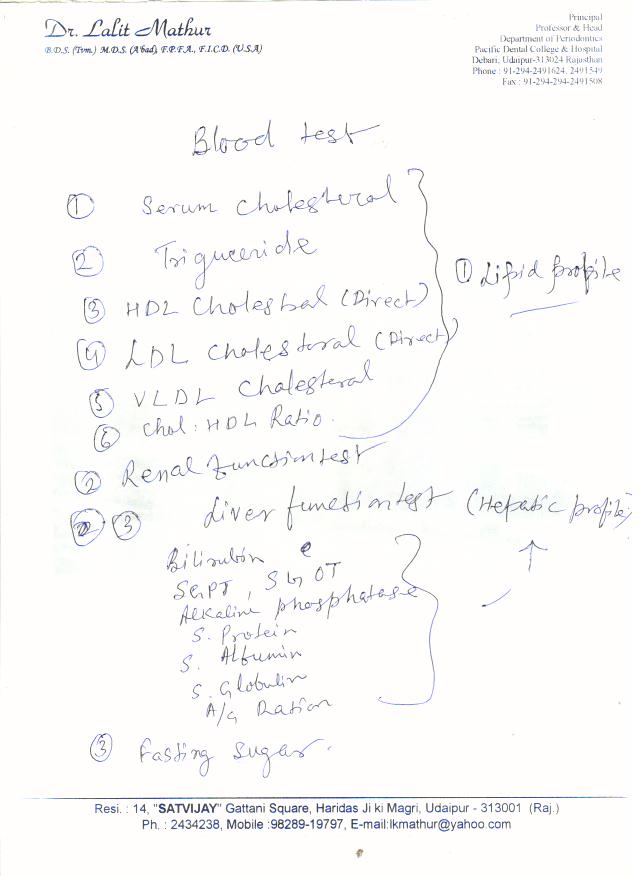 Dr. Lalit Mathur
B.D.S. (Tvm.) M.D.S. (A'bad), F.P.F.A., F.I.C.D. (U.S.A)
Principal
Professor & Head
Department of Periodontics
Pacific Dental College & Hospital
Debari, Udaipur-313024 Rajasthan
Phone : 91-294-2491624, 2491549
Fax : 91-294-294-2491508
Blood test
① Serum Cholesteral
② Triguceride
③ HDL Cholestral (Direct)
① Lipid profile
④ LDL Cholestoral (Direct)
⑤ VLDL Cholesteral
⑥ Chol : HDL Ratio.
② Renal Function test
③ Liver function test (Hepatic profile)
Bilirubin
SGPT, SGOT
Alkaline phosphatase
S. Protein
S. Albumin
S. Globulin
A/G Ration
③ Fasting Sugar.
Resi. : 14, "SATVIJAY" Gattani Square, Haridas Ji ki Magri, Udaipur - 313001 (Raj.)
Ph. : 2434238, Mobile :98289-19797, E-mail:lkmathur@yahoo.com